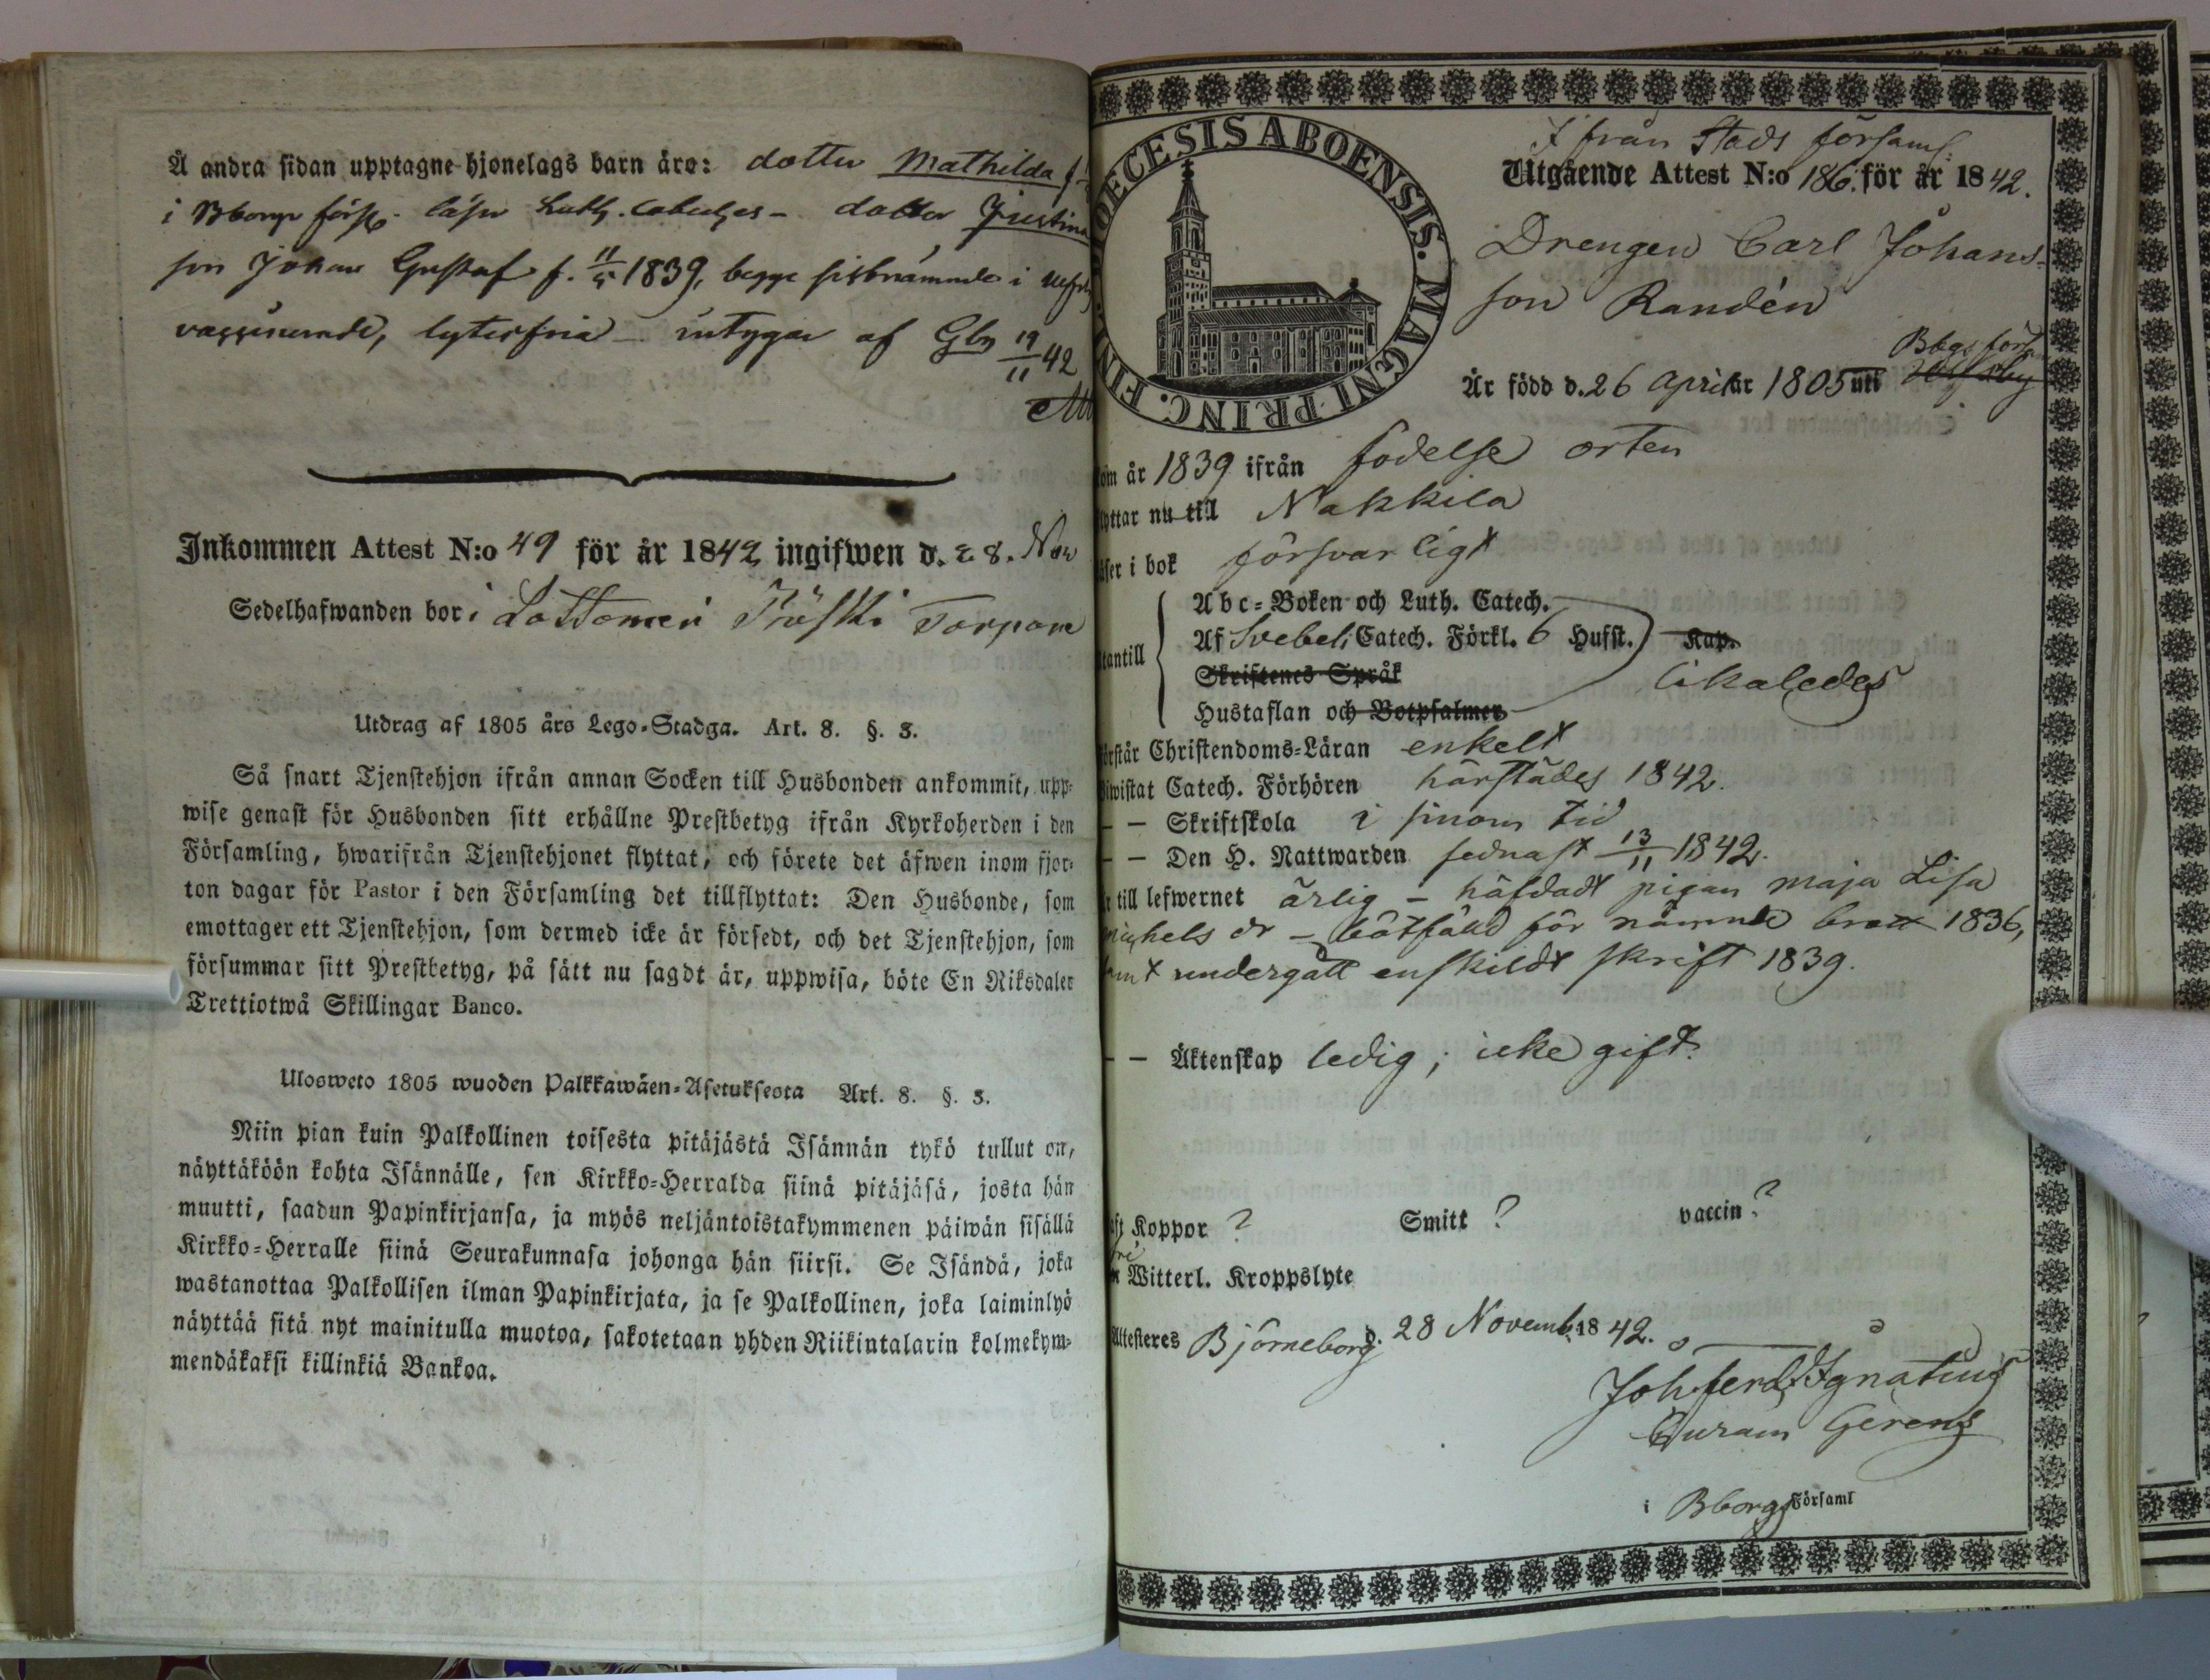 Å andra sidan upptagne hjonelags barn äro: dotter Mathilda f.
i Bborgs förs. läser Luth. Cateches - dotter Justina
son Johan Gustaf f. 11/5 1839, begge sistnämnde i
vaccinerade, lytesfria - intygar af Gby 19/11 42
Inkommen Attest N:o 49 för år 1842 ingifwen d. 28. Nov
Sedelhafwanden bor i Lattomeri Torpare
Utdrag af 1805 års Lego-Stadga. Art. 8. §. 3.
Så snart Tjenstehjon ifrån annan Socken till Husbonden ankommit, upp-
wise genast för Husbonden sitt erhållne Prestbetyg ifrån Kyrkoherden i den
Församling, hwarifrån Tjenstehjonet flyttat, och förete det äfwen inom fjor-
ton dagar för Pastor i den Församling det tillflyttat: Den Husbonde, som
emottager ett Tjenstehjon, som dermed icke är försedt, och det Tjenstehjon, som
försummar sitt Prestbetyg, på sätt nu sagdt är, uppwisa, böte En Riksdaler
Trettiotwå Skillingar Banco.
Ulosweto 1805 wuoden Palkkawäen-Asetuksesta Art. 8. §. 3.
Niin pian kuin Palkollinen toisesta pitäjästä Isännän tykö tullut on,
näyttäköön kohta Isännälle, sen Kirkko-Herralda siinä pitäjäsä, josta hän
muutti, saadun Papinkirjansa, ja myös neljäntoistakymmenen päiwän sisällä
Kirkko-Herralle siinä Seurakunnasa johonga hän siirsi. Se Isändä, joka
wastanottaa Palkollisen ilman Papinkirjata, ja se Palkollinen, joka laiminlyö
näyttää sitä nyt mainitulla muotoa, sakotetaan yhden Riikintalarin kolmekym-
mendäkaksi killinkiä Bankoa.
DIOECESIS ABOENSIS. MAGNI PRINC. FIN
Ifrån Stads församl:
Utgående Attest N:o 186. för år 1842.
Drengen Carl Johans-
son Randén
Bbgs förs
Är född d. 26 April år 1805 uti
om år 1839 ifrån födelse orten
yttar nu till Nakkila
äser i bok försvarligt
tantill
Abc-Boken och Luth. Catech.
Af Svebeli Catech. Förkl. 6 Hufst. Kap.
Skriftenes Språk likaledes
Hustaflan och Botpsalmer
örstår Christendoms-Läran enkelt
iwistat Catech. Förhören härstädes 1842.
— — Skriftskola i sinom tid
— — Den H. Nattwarden sednast 13/11 1842.
r till lefwernet ärlig - häfdadt pigan Maja Lisa
Michels dr - bötfälld för nämnde brott 1836,
samt undergått enskildt skrift 1839.
— — Äktenskap ledig; icke gift.
aft Koppor ? Smitt ? vaccin ?
fri
r Witterl. Kroppslyte
Attesteres Björneborg d. 28 Novemb. 1842.
Joh. Ferd. Ignatius
Curam Gerens
i Bborgs Församl